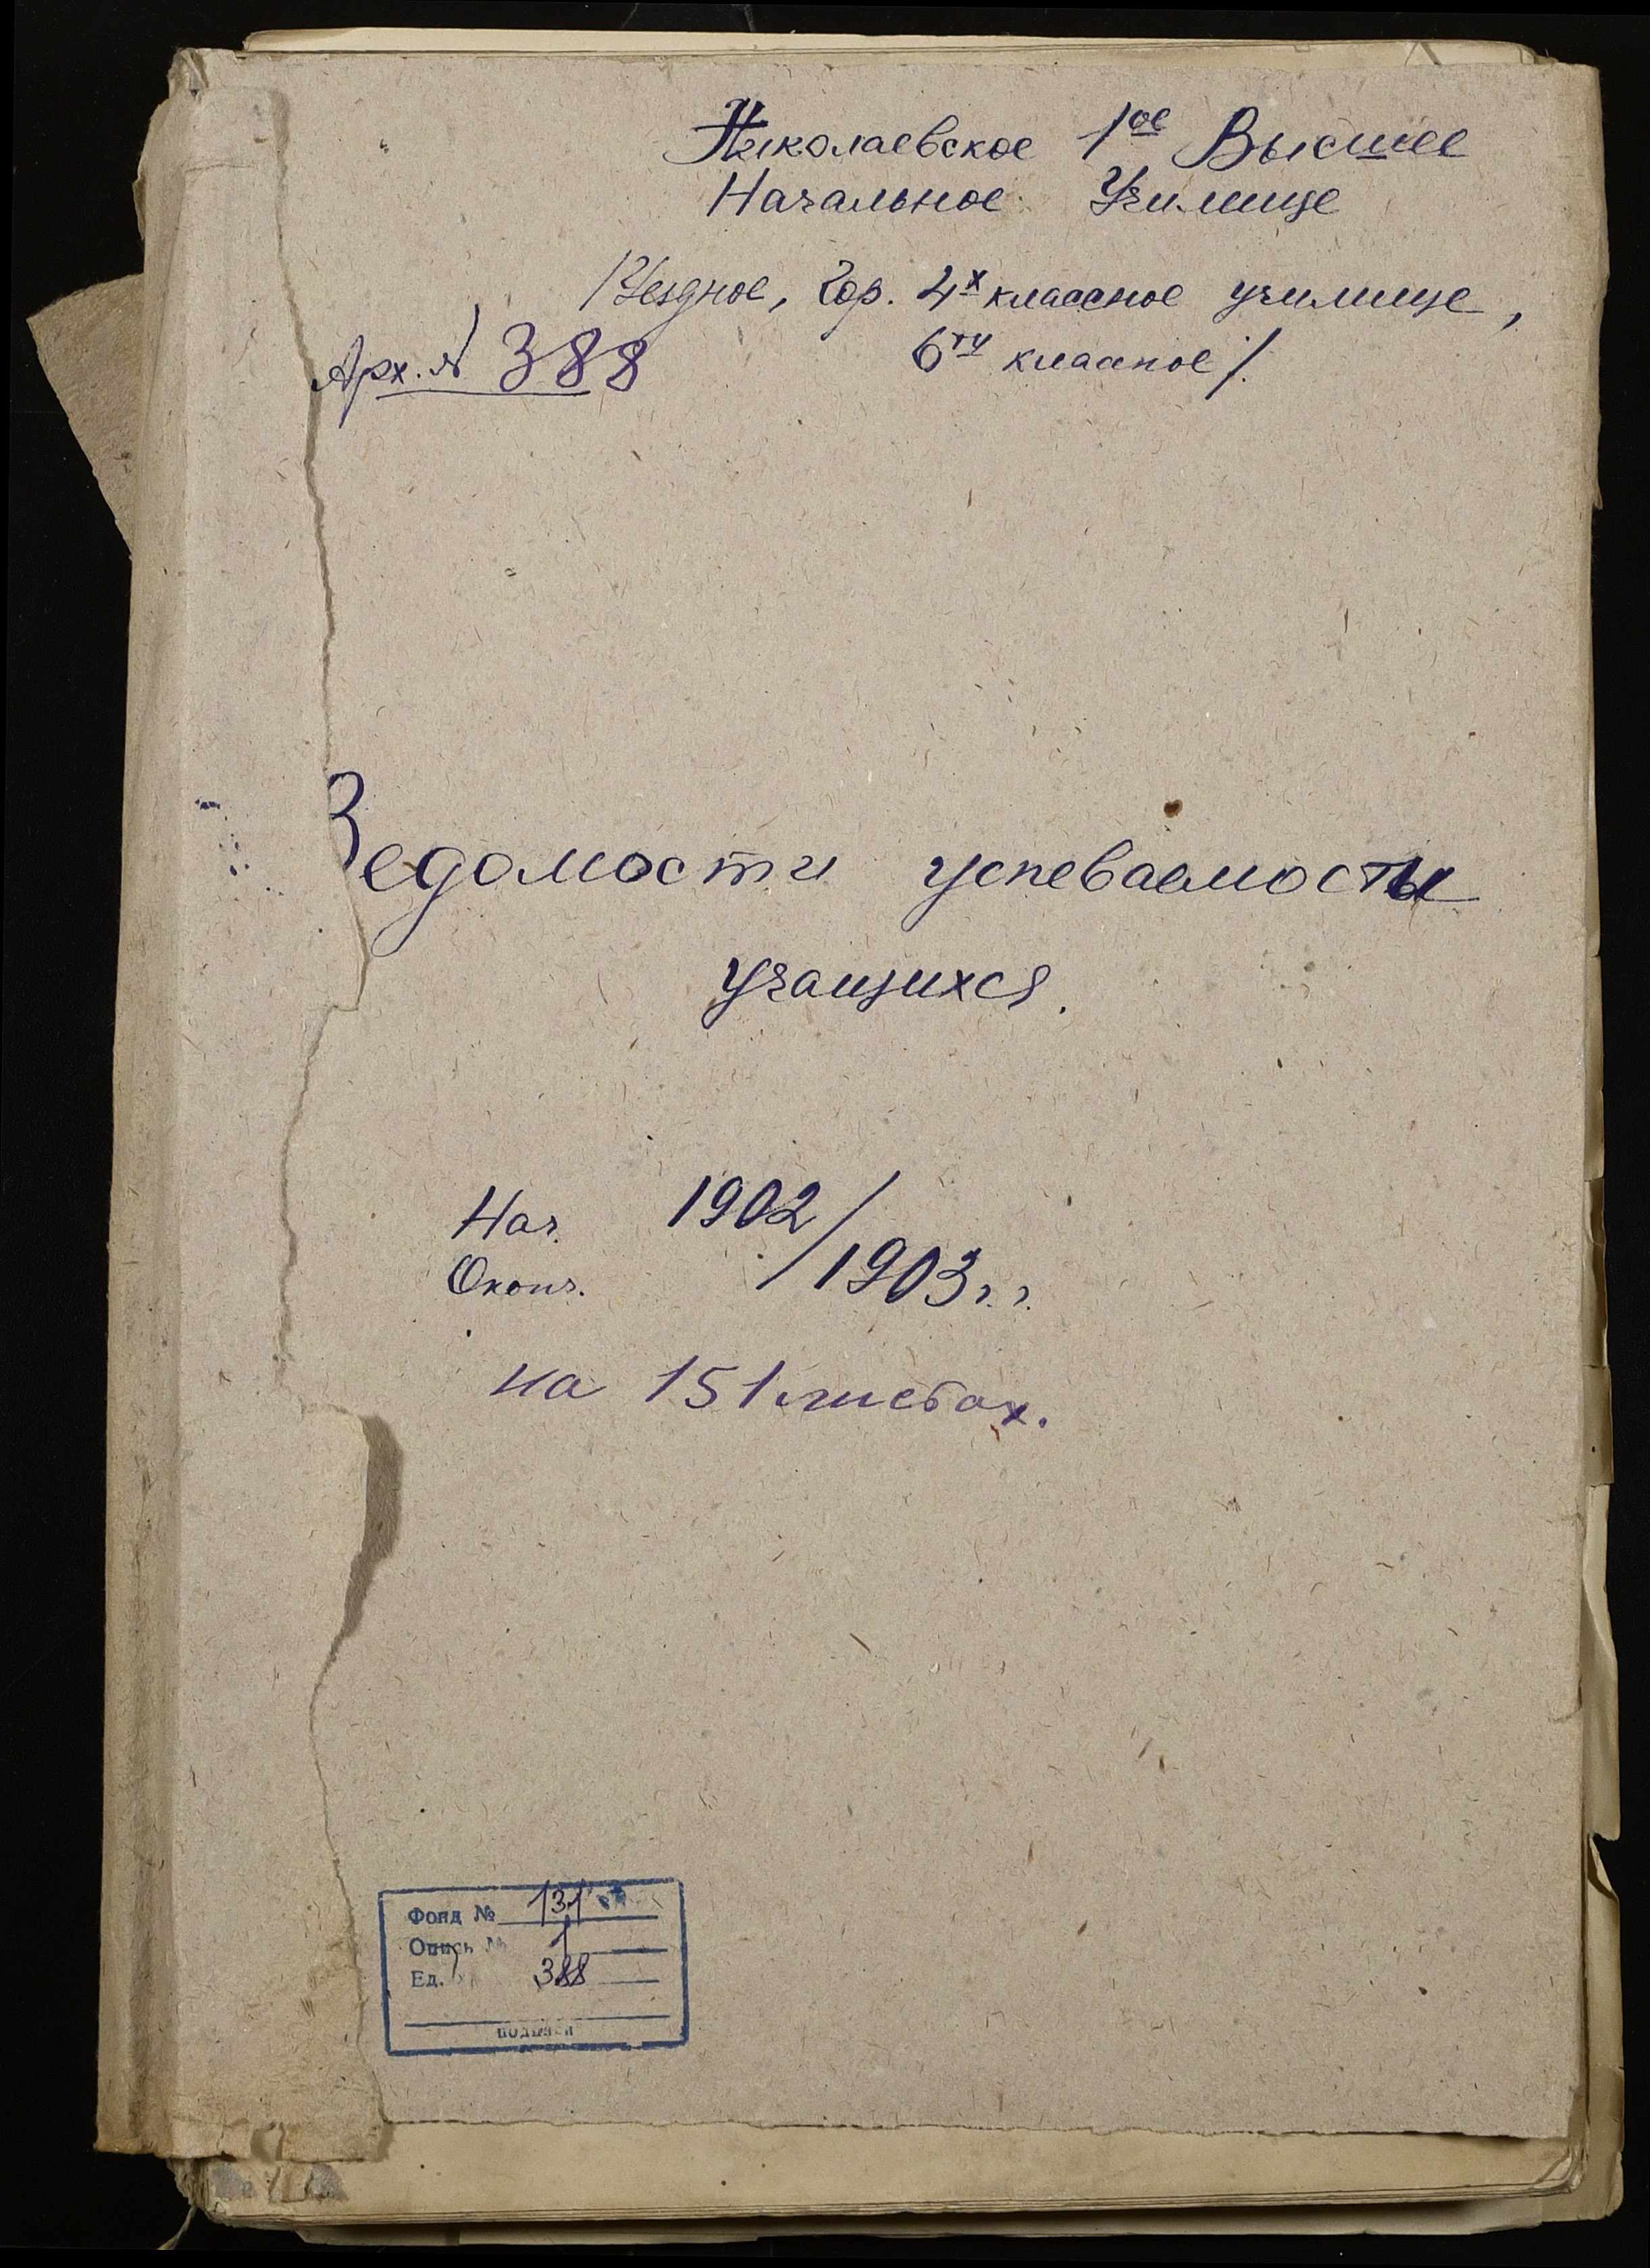 Николаевское 1ое Высшее
Начальное Училище
/Уездное, Гор. 4х классное училище,
6ти классное/.
Арх. № 388
Ведомости успеваемости
учащихся.
Нач. 1902/
Оконч. /1903 г.г.
на 151 листах.
Фонд № 131
Опись № 1
Ед. 388